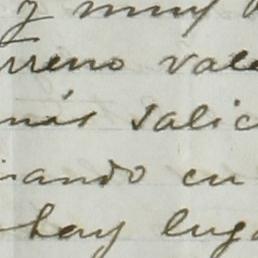 y muy
rreno vale
más salic
ando en
hay luga